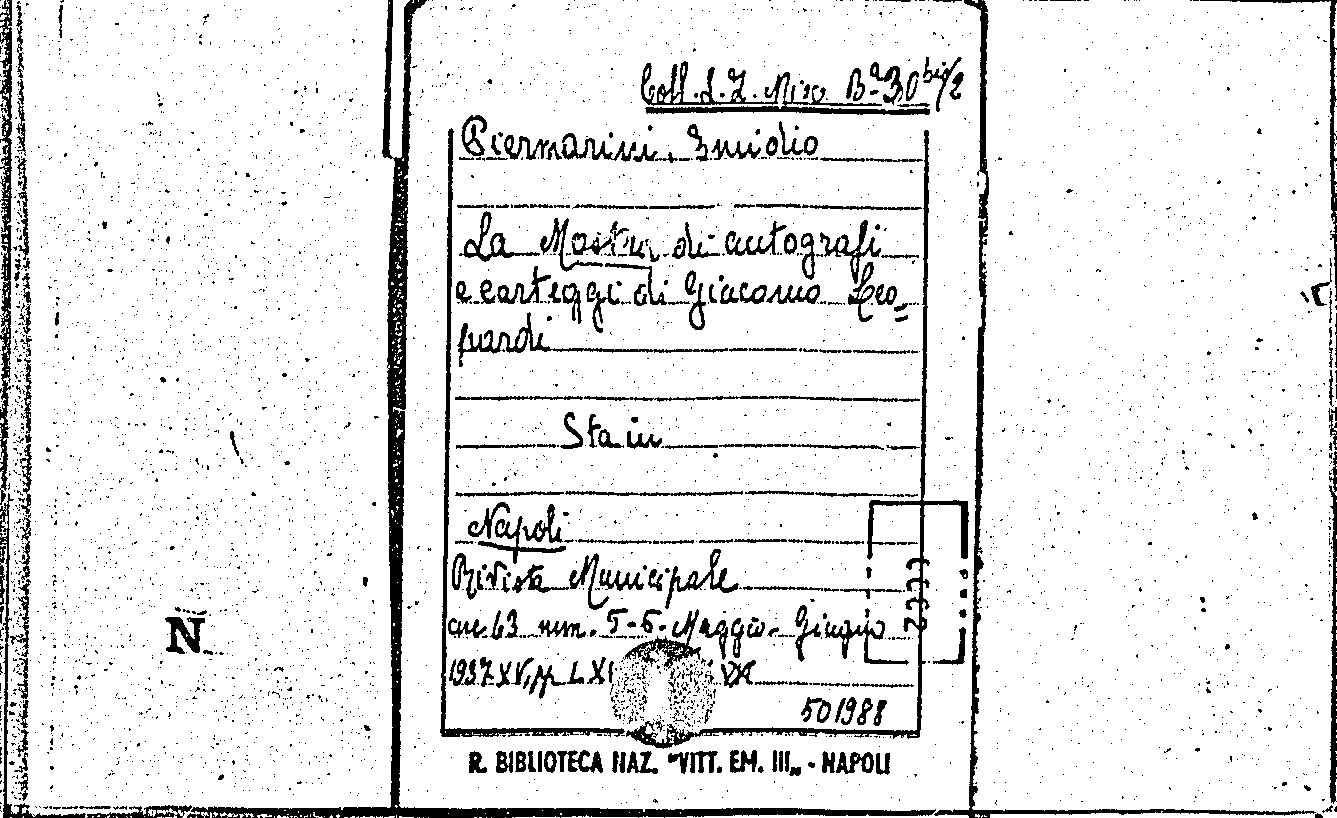 Coll. L. Z. Miso B-a 30 bis/2
Piermarini, Emidio
La Mostra di autografi
e carteggi di Giacomo Leo=
pardi
Sta in
Napoli
Rivista Municipale
an. 63 num. 5-6. Maggio-Giugno
1937 XV, pp. LXI
501988
R. BIBLIOTECA NAZ. "VITT. EM. III„ - NAPOLI
N